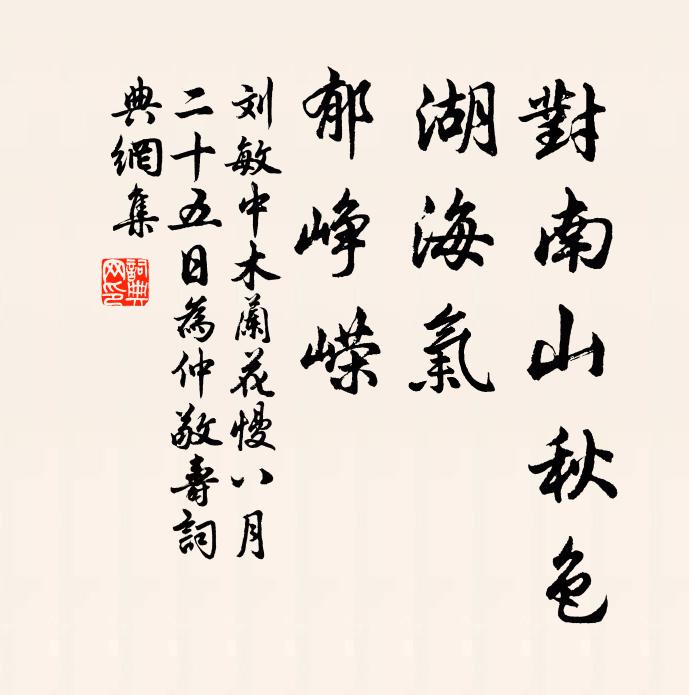 對南山秋色
湖海氣
郁峥嵘
刘敏中木蘭花慢八月
二十五日為仲敬壽詞
典網集
詞典网印